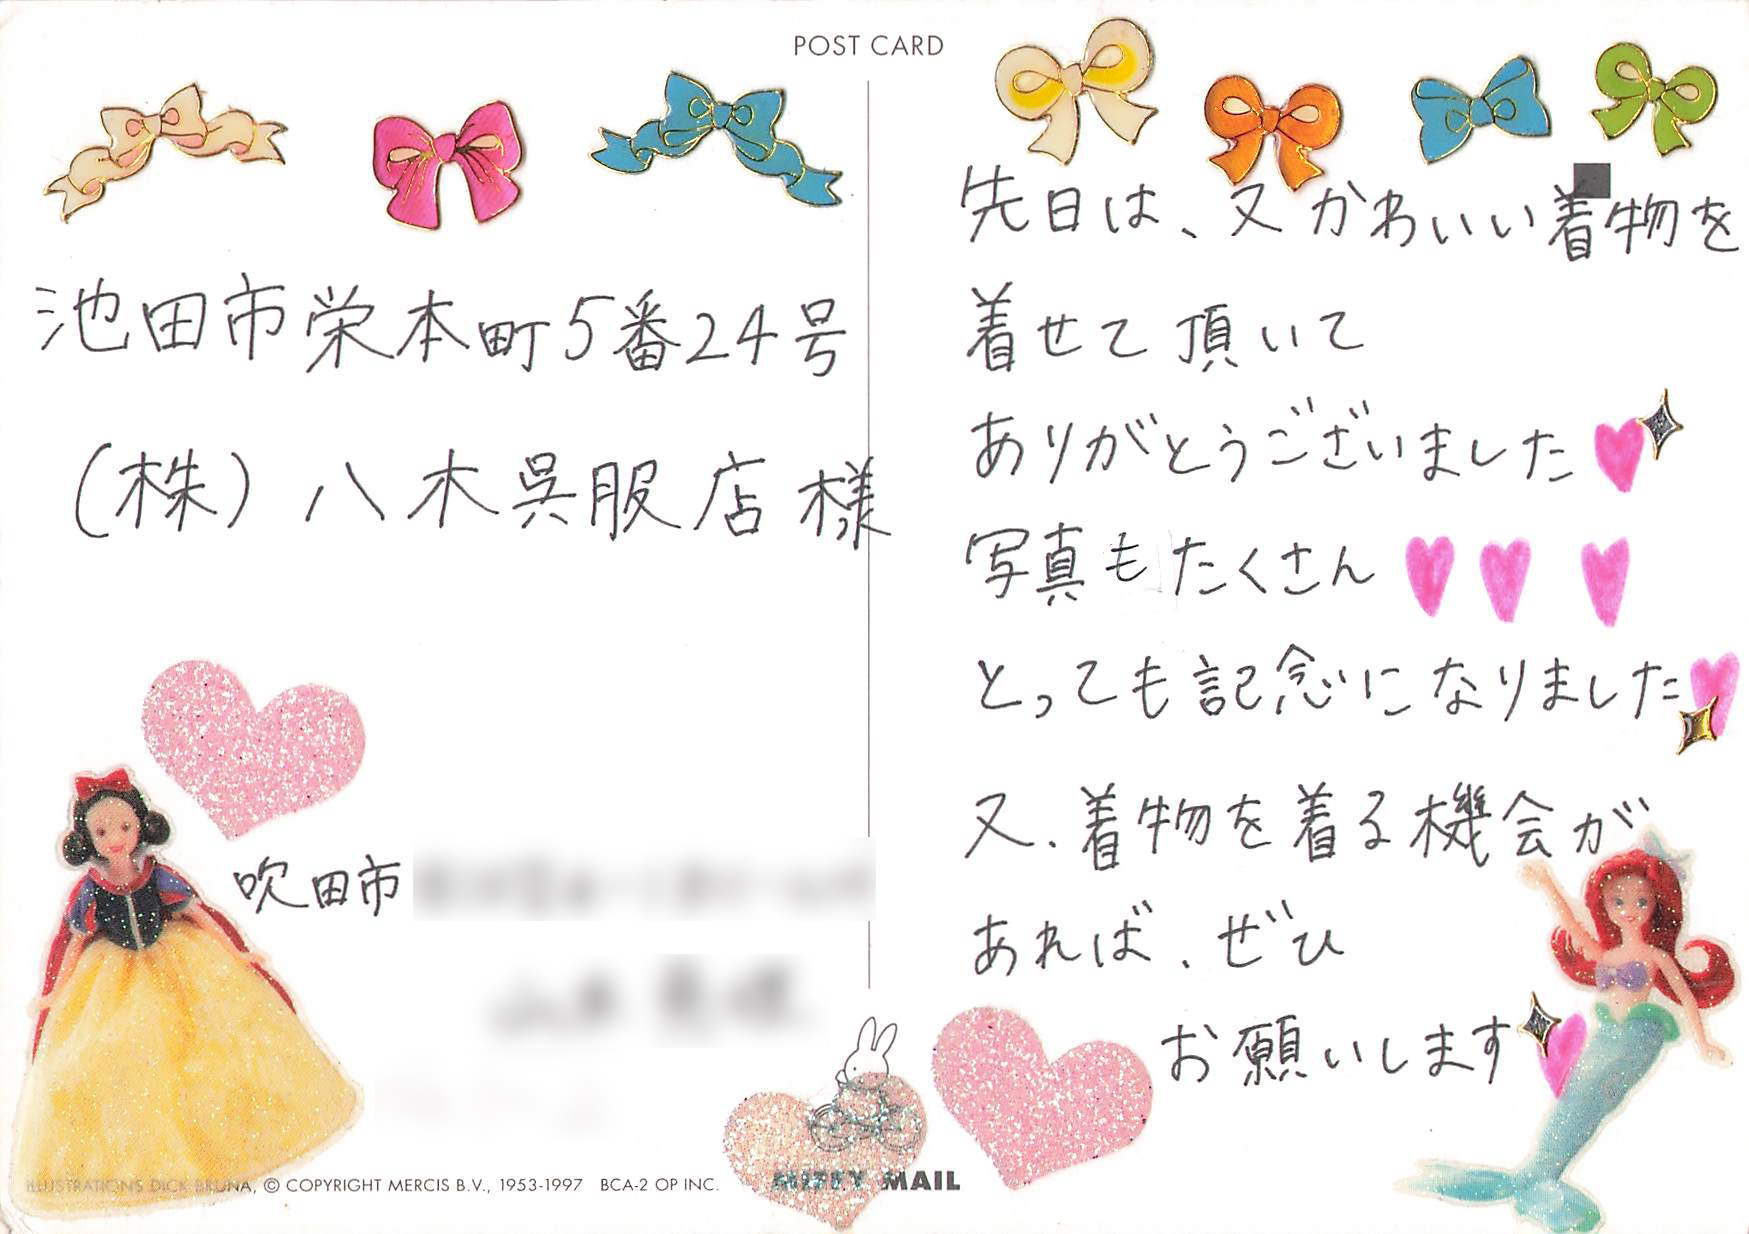 POST CARD
池田市栄本町5番24号
(株)八木呉服店様
吹田市
ILLUSTRATIONS DICK BRUNA, © COPYRIGHT MERCIS B.V., 1953-1997 BCA-2 OP INC.
MIFFY MAIL
先日は、又かわいい着物を
着せて頂いて
ありがとうございました
写真もたくさん
とっても記念になりました
又、着物を着る機会が
あれば、ぜひ
お願いします